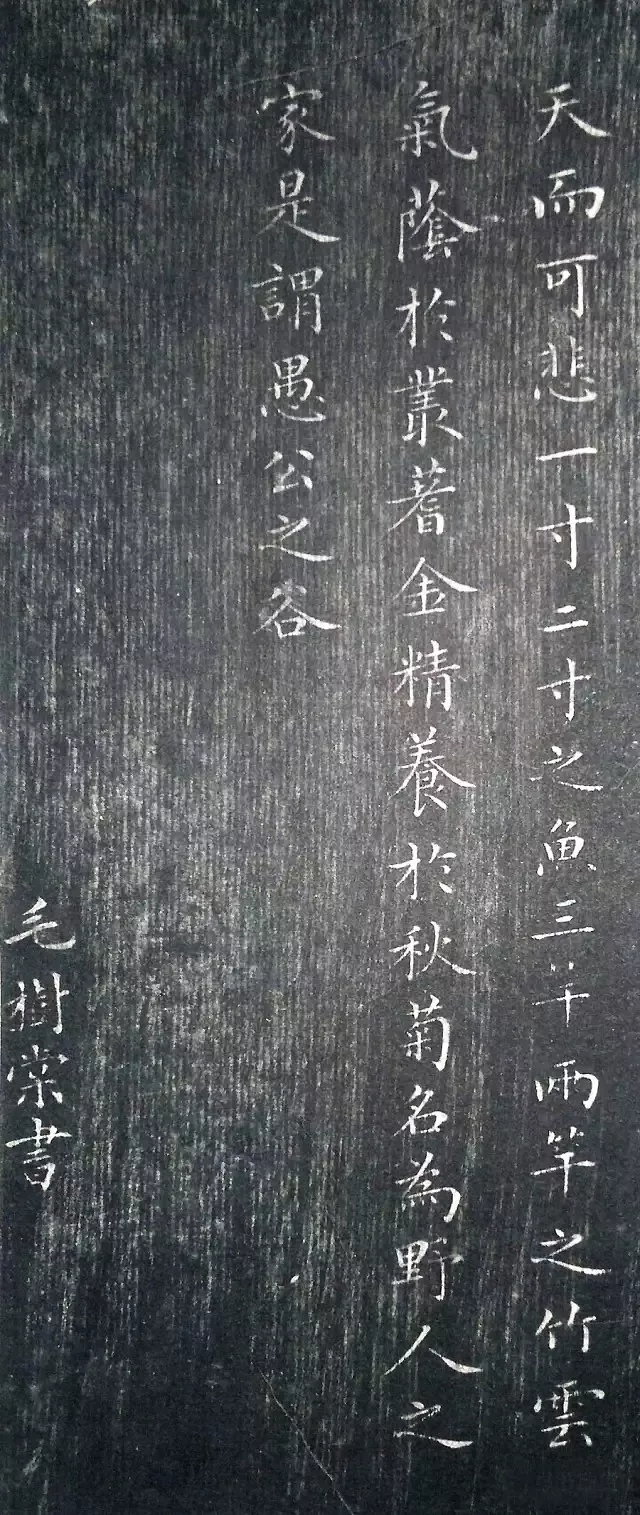 天而可悲一寸二寸之魚三竿兩竿之竹雲
氣蔭於叢蓍金精養於秋菊名為野人之
家是謂愚公之谷
毛樹棠書